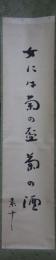 女には菊の盃菊の酒
素十